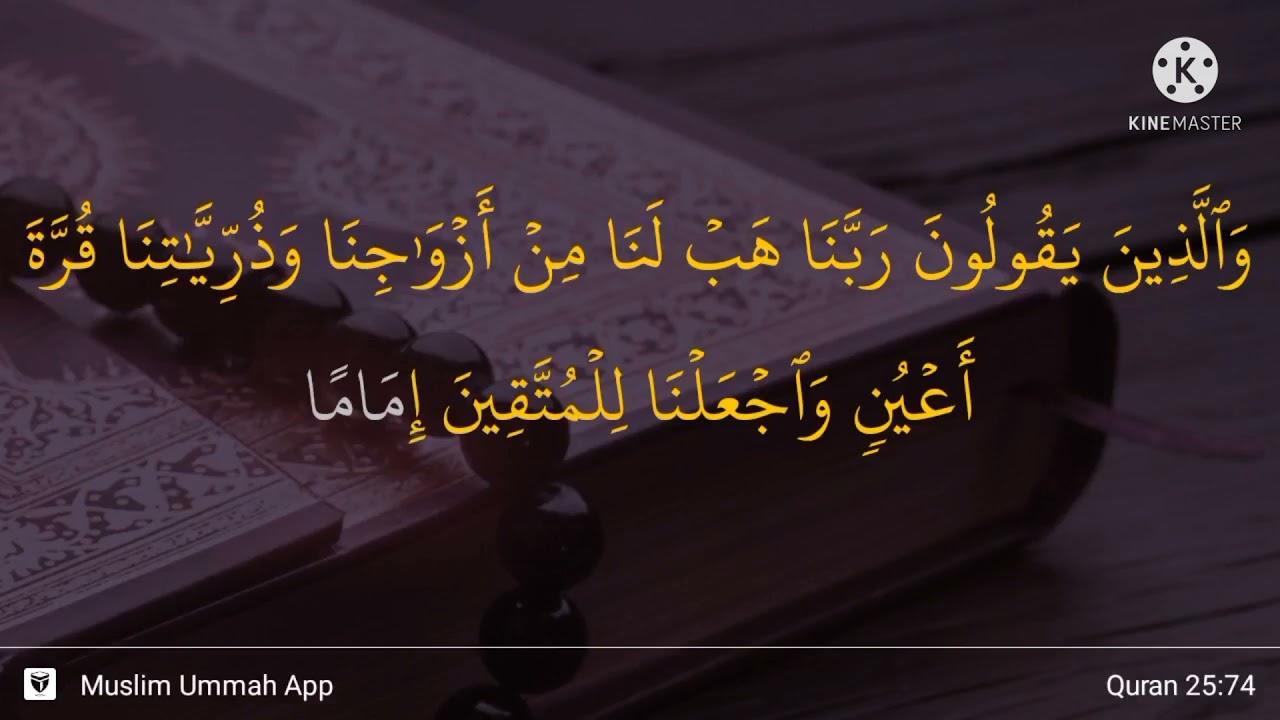 KINEMASTER
وَٱلَّذِينَ يَقُولُونَ رَبَّنَا هَبۡ لَنَا مِنۡ أَزۡوَٰجِنَا وَذُرِّيَّٰتِنَا قُرَّةَ
أَعۡيُنٖ وَٱجۡعَلۡنَا لِلۡمُتَّقِينَ إِمَامًا
Muslim Ummah App
Quran 25:74